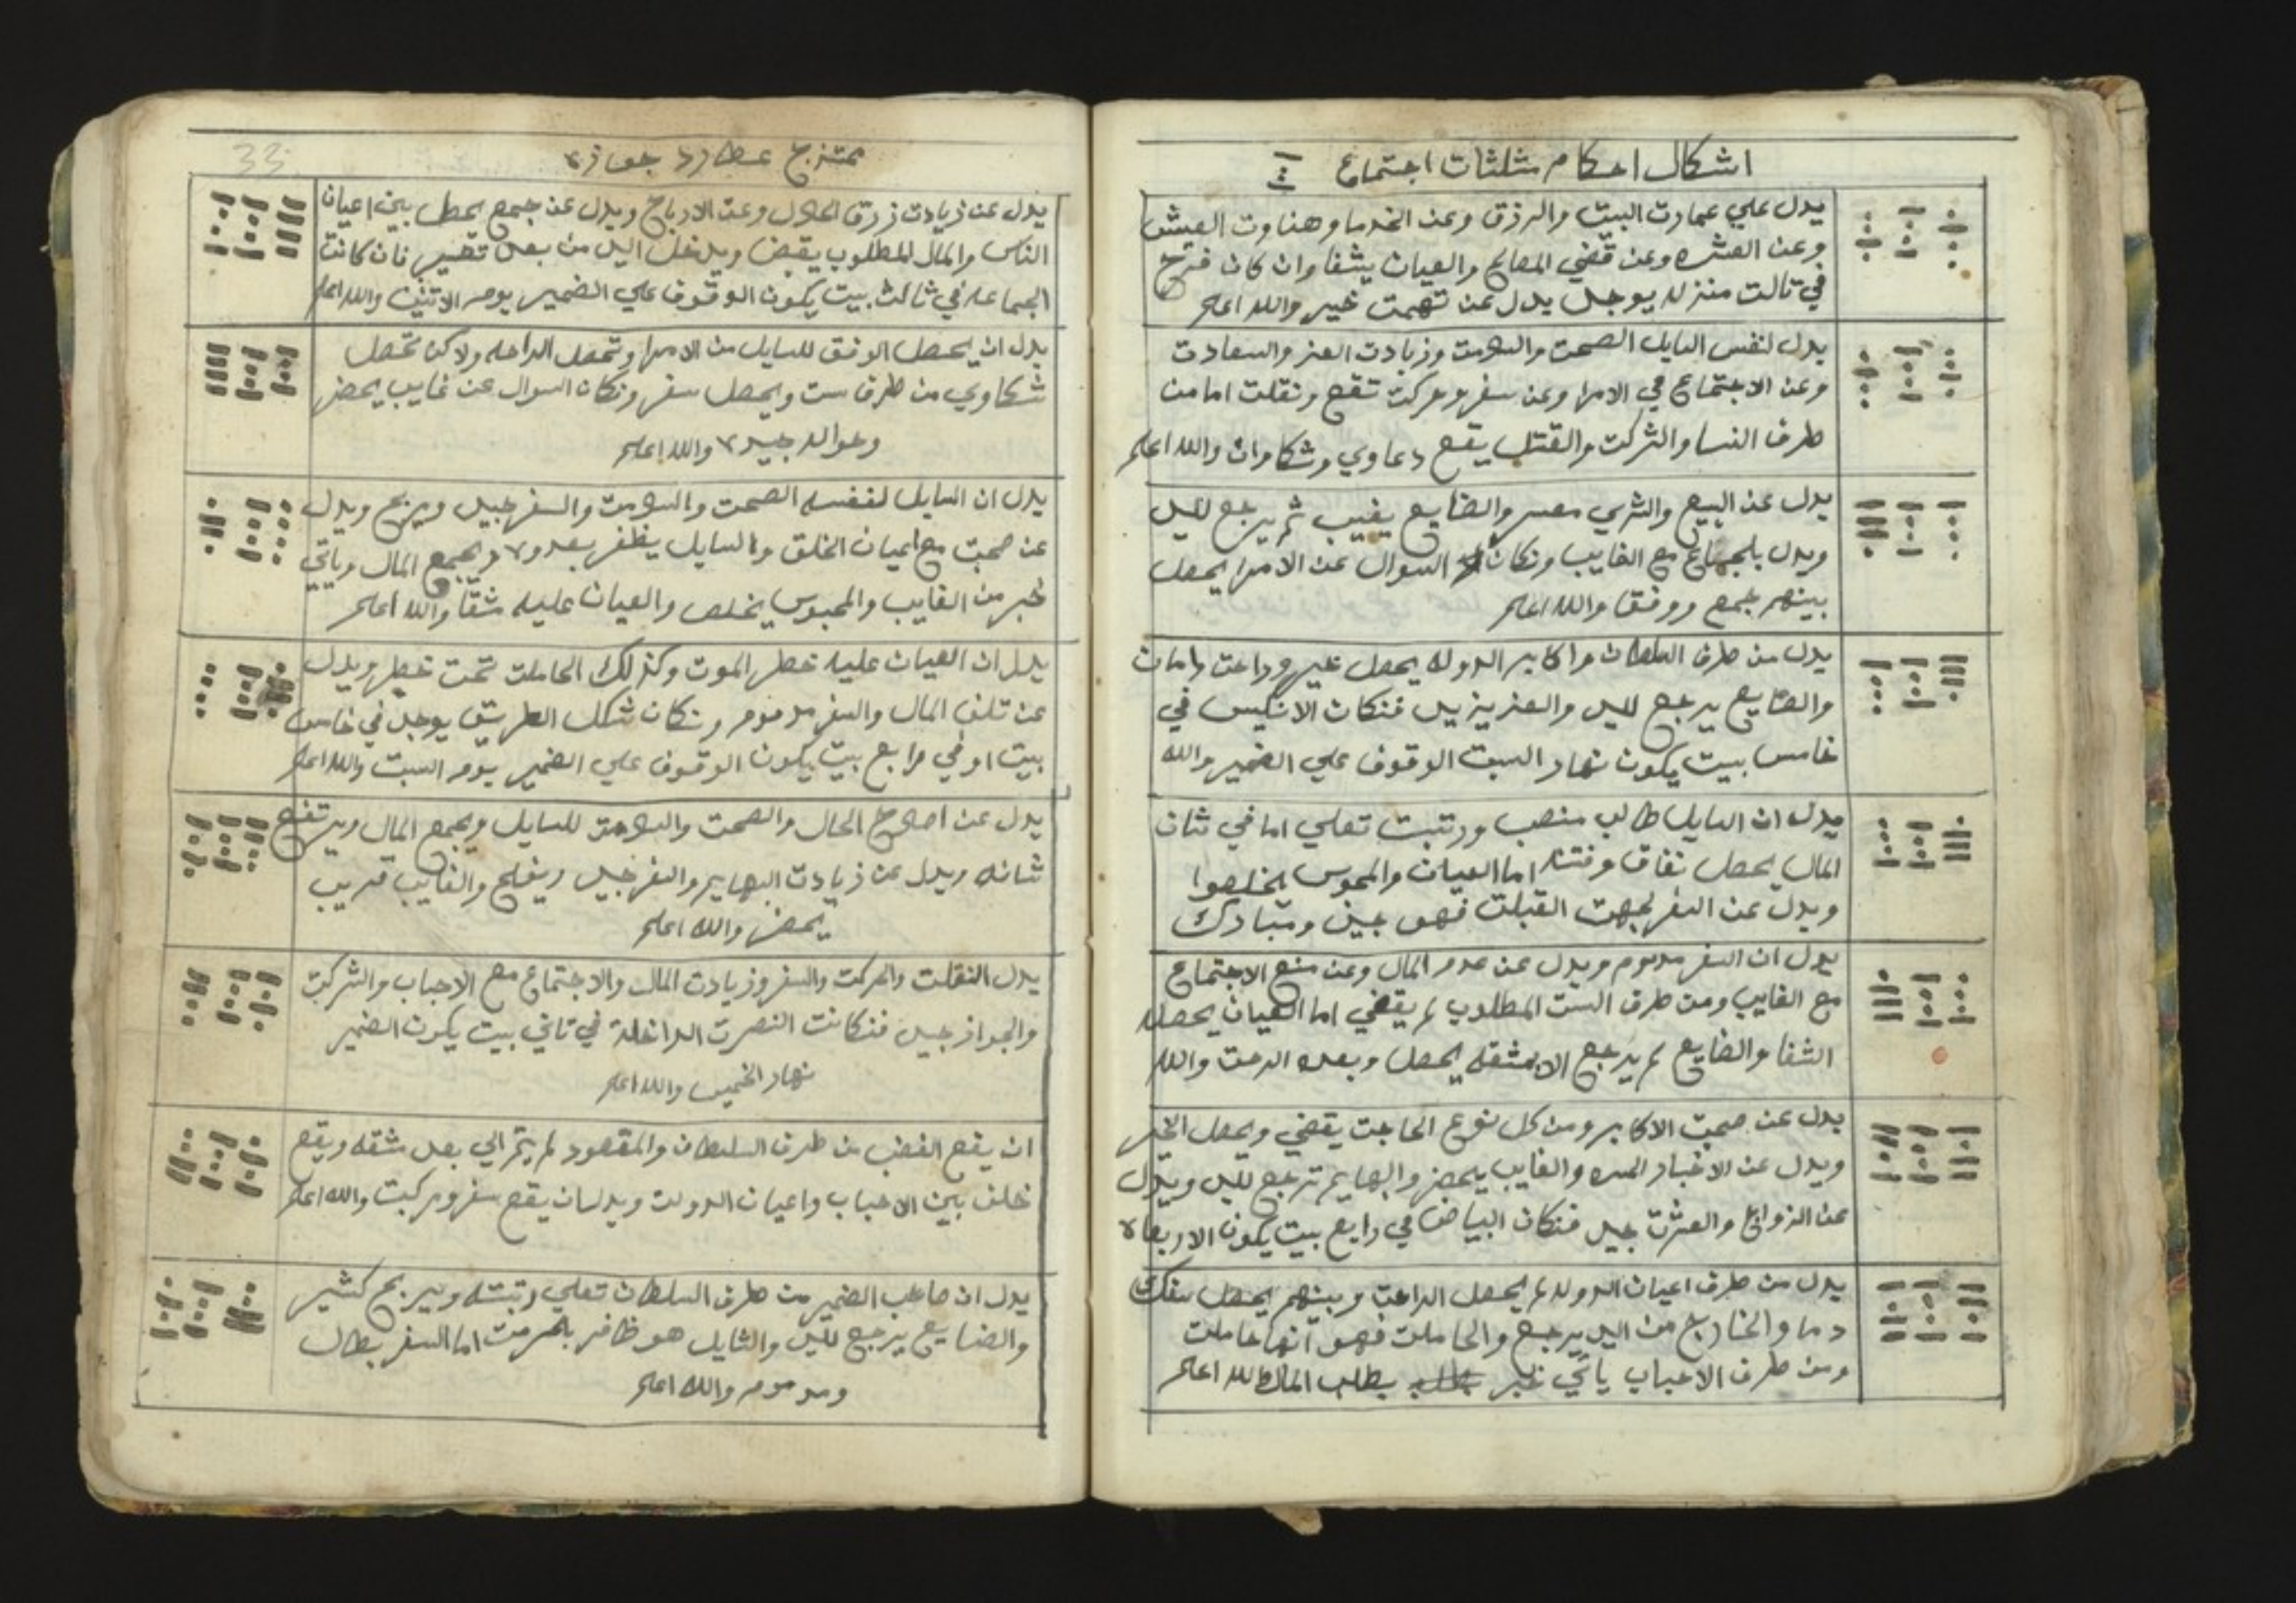 اشكال احكام مثلثات اجتماع
يدل علي عمارت البيت والرزق وعن الخدما وهناوت العيش
وعن العشره وعن قضي المصالح والعيان يشفا وان كان فرح
في تالت منزله يوجد يدل عن تهمت خير والله اعلم
يدل لنفس السايل الصحت والسلامت وزيادت العز والسعادت
وعن الاجتماع في الامرا وعن سفر وحركت تقع ونقلت اما من
طرف النسا والشركت والقتل يقع دعاوي وشكاوات والله اعلم
يدل عن البيع والشري معسر والضايع يغيب ثم يرجع لليد
ويدل بلجماع مع الغايب ونكان السوال عن الامرا يحصل
بينهم جمع ووفق والله اعلم
يدل من طرف السلطان واكابر الدوله يحصل خير وراحت وامان
والضايع يرجع لليد والعز يزيد فنكان الانكيس في
خامس بيت يكون نهار السبت الوقوف علي الضمير والله
يدل ان السايل طالب منصب ورتبت تعلي اما في شان
المال يحصل نفاق وفتنه اما العيان والمحبوس يخلصوا
ويدل عن السفر لجهت القبلت فهو جيد ومبارك
يدل ان السفر مدموم ويدل عن عدم المال وعن منع الاجتماع
مع الغايب ومن طرف الست المطلوب لم يقضي اما العيان يحصله
الشفا والضايع لم يرجع الا بمشقه يحصل وبعده الرحت والله
يدل عن صحبت الاكابر ومن كل نوع الحاجت يقضي ويحصل الخير
ويدل عن الاخبار المسره والغايب يحضر والبهايم ترجع لليد ويدل
عن الزواج والعشرت جيد فنكان البياض في رابع بيت يكون الاربعاء
يدل من طرف اعيان الدوله لم يحصل الراحت وبينهم يحصل سفك
دما والخارج من اليد يرجع والحاملت فهو انها حاملت
ومن طرف الاحباب ياتي خبر بطلب المال والله اعلم
33
ممتزج عطارد جوازه
يدل عن زيادت رزق الحلال وعن الارباح ويدل عن جمع يحصل بين اعيان
الناس والمال المطلوب يقبض ويدخل اليد من بعد تعسير فان كانت
الجماعه في ثالث بيت يكون الوقوف علي الضمير يوم الاتنين والله اعلم
يدل ان يحصل الوفق للسايل من الامرا وتحصل الراحه ولاكن تحصل
شكاوي من طرف ست ويحصل سفر ونكان السوال عن غايب يحضر
وعواله جيده والله اعلم
يدل ان السايل لنفسه الصحت والسلامت والسفر جيد ويربح ويدل
عن صحبت مع اعيان الخلق والسايل يظفر بعدوه ويجمع المال وياتي
خبر من الغايب والمحبوس يخلص والعيان عليه شقا والله اعلم
يدل ان العيان عليه خطر الموت وكذلك الحاملت تحت خطر ويدل
عن تلف المال والسفر مدموم ونكان شكل الطريق يوجد في خامس
بيت او في رابع بيت يكون الوقوف علي الضمير يوم السبت والله اعلم
يدل عن اصلاح الحال والصحت والسلامت للسايل ويجمع المال ويرتفع
شانه ويدل عن زيادت البهايم والسفر جيد ويفلح والغايب قريب
يحضر والله اعلم
يدل النقلت والحركت والسفر وزيادت المال والاجتماع مع الاحباب والشركت
والجواز جيد فنكانت النصرت الداخلة في تاني بيت يكون الضمير
نهار الخميس والله اعلم
ان يقع الغضب من طرف السلطان والمقصود لم يتم الي بعد مشقه ويقع
خلف بين الاحباب واعيان الدولت ويدل ان يقع سفر ومركبت والله اعلم
يدل ان صاحب الضمير من طرف السلطان تعلي رتبته ويربح كثير
والضايع يرجع لليد والثايل هو ظافر بلحرمت اما السفر بطال
ومدموم والله اعلم